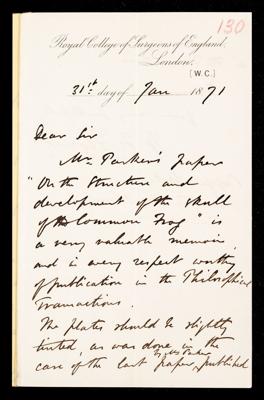 130
Royal College of Surgeons of England,
London.
[W.C.]
31st day of Jan 1871
Dear Sir
Mr Parker's paper
"On the Structure and
development of the skull
of the Common Frog" is
a very valuable memoir,
and in every respect worthy
of publication in the Philosophical
Transactions.
The plates should be slightly
tinted, as was done in the
by Mr Parker
case of the last paper, published